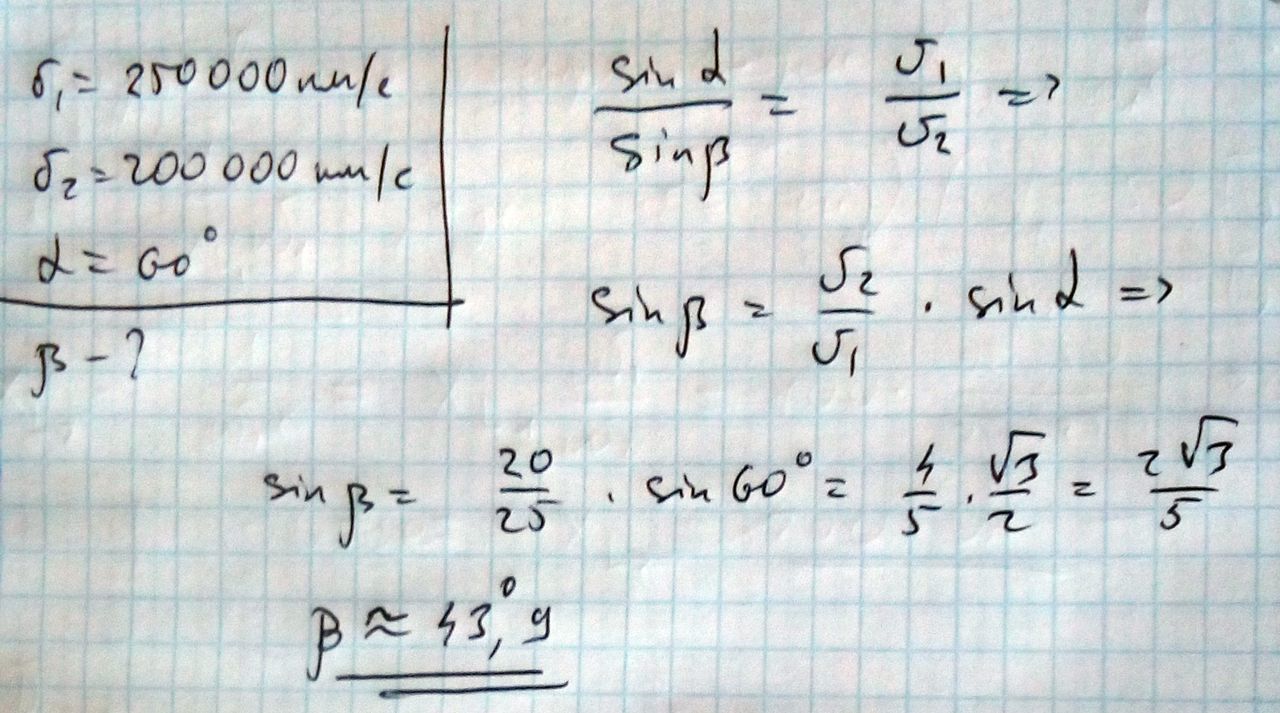 υ₁ = 250 000 км/с
υ₂ = 200 000 км/с
α = 60°
β - ?
sin α / sin β = υ₁ / υ₂ =>
sin β = υ₂ / υ₁ · sin α =>
sin β = 20/25 · sin 60° = 4/5 · √3/2 = 2√3/5
β ≈ 43,°9